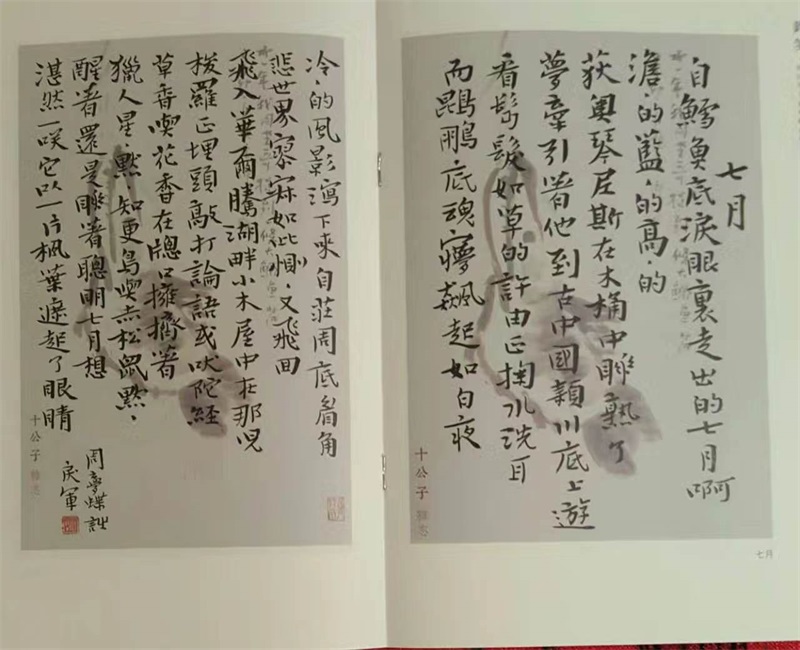 七月
自鱈魚底淚眼裏走出的七月啊
澹々的藍々的高々的
荻奧琴尼斯在木桶中睡熟了
夢牽引着他到古中國穎川底上遊
看鬅髮如草的許由正掬水洗耳
而鵾鵬底魂夢飆起如白夜
十公子 雜志
七月
冷々的風影瀉下來自莊周底眉角
悲世界寥寂如此惻々又飛回
飛入華爾騰湖畔小木屋中在那兒
梭羅正埋頭敲打論語或吠陀經
草香喫花香在牕口擁擠着
獵人星々默知更鳥喫赤松鼠默々
醒着還是睡着聰明七月想
湛然一咲它以一片楓葉遮起了眼睛
周夢蝶詩
戾軍
十公子 雜志